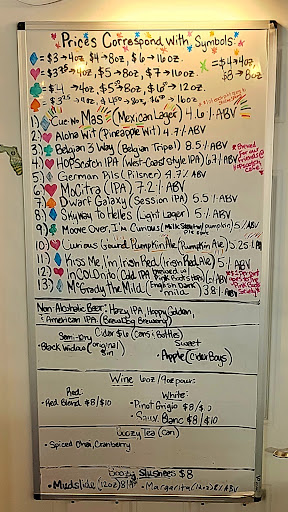 Prices Correspond With Symbols:
= $3→4oz, $4→8oz, $6→16oz.
= $3.25→4oz, $5→8oz, $7→16oz.
= $4→4oz, $5→8oz, $6→12oz.
= $4→4oz
$3→8oz
1) Cue-No Mas (Mexican Lager) 4.6% ABV
2) Aloha Wit (Pineapple Wit) 4.7% ABV
3) Belgian 3 Way (Belgian Tripel) 8.5% ABV
4) HOPScotch IPA (West-Coast Style IPA) 6.7% ABV
Brewed For our Friends @ Hopscotch
5) German Pils (Pilsner) 4.7% ABV
6) MoCitra (IPA) 7.2% ABV
7) Dwarf Galaxy (Session IPA) 5.5% ABV
8) Skyway to Helles (Light Lager) 5% ABV
9) Moove Over, I'm Curious (Milk Stout w/ pumpkin pie spice) 5% ABV
10) Curious Gourd Pumpkin Ale (Pumpkin Ale) 5.25% ABV
11) Kiss Me, I'm Irish Red (Irish Red Ale) 5% ABV
12) In COLD IPA (Cold IPA brewed w/ Pink Boots Hops) 6% ABV
13) McGrody the Mild (English Dark mild) 3.8% ABV
Non-Alcoholic Beer: Hazy IPA, Hoppy Golden,
American IPA (BrewDog Brewery)
Cider $6 (Cans & Bottles)
Semi-Dry
• Black Widow (original 9in
Sweet
• Apple (Cider Boys)
Wine 6oz/9oz pour:
Red:
• Red Blend $8/$10
White:
• Pinot Grigio $8/$10
• Sauv. Blanc $8/$10
Boozy Tea (can)
• Spiced Chai, Cranberry
Boozy Slushees $8
• Mudslide (12oz) 8% • Margarita (12oz) 8% ABV